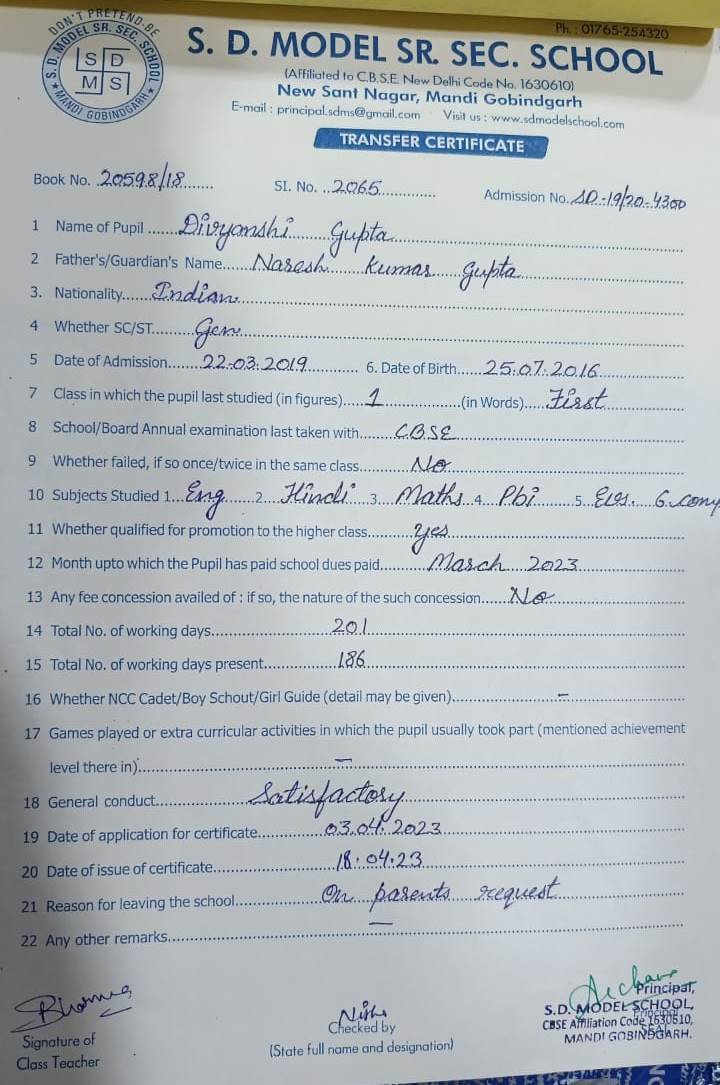 DON'T PRETEND-BE
S. D. MODEL SR. SEC. SCHOOL
MANDI GOBINDGARH
S D
M S
Ph. : 01765-254320
S. D. MODEL SR. SEC. SCHOOL
(Affiliated to C.B.S.E. New Delhi Code No. 1630610)
New Sant Nagar, Mandi Gobindgarh
E-mail : principal.sdms@gmail.com Visit us : www.sdmodelschool.com
TRANSFER CERTIFICATE
Book No. 20598/18 SI. No. 2065 Admission No. SD-19/20-4300
1 Name of Pupil Divyanshi Gupta
2 Father's/Guardian's Name Naresh Kumar Gupta
3. Nationality Indian
4 Whether SC/ST Gen
5 Date of Admission 22-03.2019 6. Date of Birth 25.07.2016
7 Class in which the pupil last studied (in figures) 1 (in Words) First
8 School/Board Annual examination last taken with CBSE
9 Whether failed, if so once/twice in the same class No
10 Subjects Studied 1 Eng 2 Hindi 3 Maths 4 Pbi 5 6.
11 Whether qualified for promotion to the higher class yes
12 Month upto which the Pupil has paid school dues paid March 2023
13 Any fee concession availed of : if so, the nature of the such concession No
14 Total No. of working days 201
15 Total No. of working days present 186
16 Whether NCC Cadet/Boy Schout/Girl Guide (detail may be given) -
17 Games played or extra curricular activities in which the pupil usually took part (mentioned achievement
level there in) -
18 General conduct Satisfactory
19 Date of application for certificate 03.04.2023
20 Date of issue of certificate 18.04.23
21 Reason for leaving the school On parents request
22 Any other remarks -
Signature of
Class Teacher
Nisha
Checked by
(State full name and designation)
Archana
Principal,
S.D. MODEL SCHOOL,
CBSE Affiliation Code 1630610,
MANDI GOBINDGARH.
Principal
SEAL